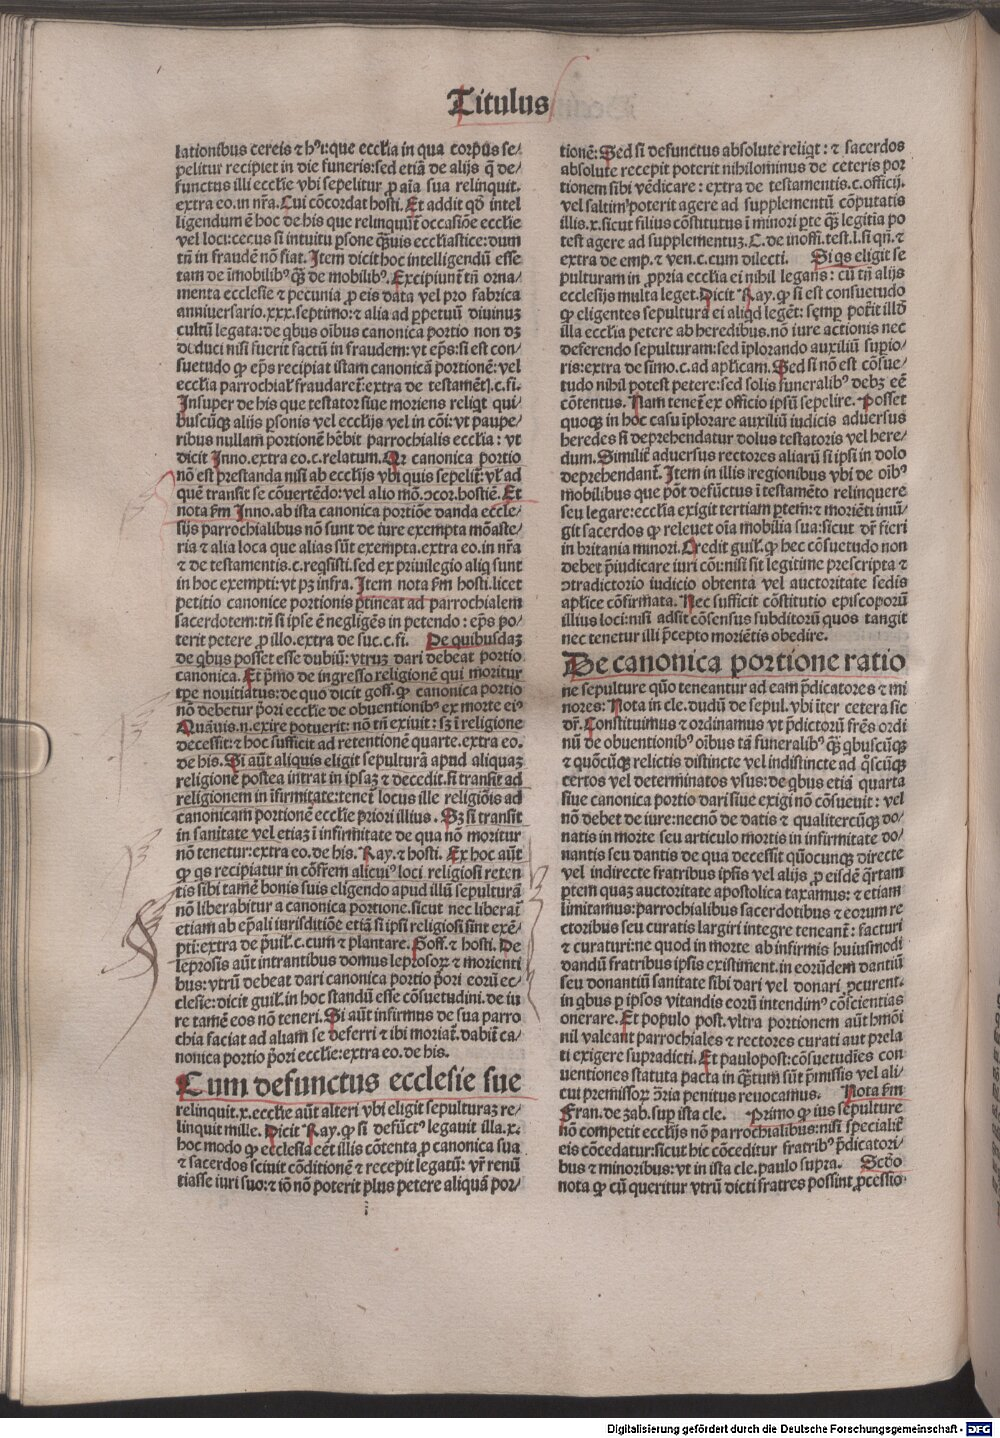 Titulus
lationibus cereis ⁊ hꝰi: que ecclia in qua corpus se⸗
pelitur recipiet in die funeris: sed etiã de alijs q̃ de⸗
functus illi ecclie vbi sepelitur ꝓ aĩa sua relinquit.
extra eo. in nr̃a. Cui cõcordat hosti. Et addit qđ intel
ligendum ẽ hoc de his que relinquũt̃ occasiõe ecclie
vel loci: cecus si intuitu ꝑsone q̃ꝫuis ecclãstice: dum
tñ in fraudẽ nõ fiat. Item dicit hoc intelligendũ esse
tam de ĩmobilibꝰ q̃ꝫ de mobilibꝰ. Excipiunt̃ tñ orna⸗
menta ecclesie ⁊ pecunia ꝓ eis data vel pro fabrica
anniuersario. xxx. septimo: ⁊ alia ad ꝑpetuũ diuinuꝫ
cultũ legata: de qbus oĩbus canonica portio non dꝫ
deduci nisi fuerit factũ in fraudem: vt ep̃s: si est con⸗
suetudo ꝙ ep̃s recipiat istam canonicã portionẽ: vel
ecclia parrochial̃ fraudaret̃: extra de testamẽt]. c. fi.
Insuper de his que testator siue moriens reliqt qui⸗
buscũqꝫ alijs ꝑsonis vel ecclijs vel in cõi: vt paupe⸗
ribus nullam portionẽ hẽbit parrochialis ecclia: vt
dicit Inno. extra eo. c. relatum. Qꝛ canonica portio
nõ est prestanda nisi ab ecclijs vbi quis sepelit̃: vl̃ ad
quẽ transit se cõuertẽdo: vel alio mõ. ɔcoꝛ. hostiẽ. Et
nota ẜm Inno. ab ista canonica portiõe danda eccle⸗
sijs parrochialibus nõ sunt de iure exempta mõaste⸗
ria ⁊ alia loca que alias sũt exempta. extra eo. in nr̃a
⁊ de testamentis. c. reqsisti. sed ex priuilegio aliq sunt
in hoc exempti: vt pꝫ infra. Item nota ẜm hosti. licet
petitio canonice portionis ꝑtineat ad parrochialem
sacerdotem: tñ si ipse ẽ negligẽs in petendo: ep̃s po⸗
terit petere ꝓ illo. extra de suc. c. fi. De quibusdaꝫ
de qbus posset esse dubiũ: vtruꝫ dari debeat portio
canonica. Et p̃mo de ingresso religionẽ qui moritur
tꝑe nouitiatus: de quo dicit goff. ꝙ canonica portio
nõ debetur p̃ori ecclie de obuentionibꝰ ex morte eiꝰ
Quãuis. n. exire potuerit: nõ tñ exiuit: sꝫ ĩ religione
decessit: ⁊ hoc sufficit ad retentionẽ quarte. extra eo.
de his. Si aũt aliquis eligit sepulturã apud aliquaꝫ
religionẽ postea intrat in ipsaꝫ ⁊ decedit. si transit ad
religionem in ĩfirmitate: tenet̃ locus ille religiõis ad
canonicam portionẽ ecclie p̃riori illius. Sꝫ si transit
in sanitate vel etiaꝫ ĩ infirmitate de qua nõ moritur
nõ tenetur: extra eo. de his. Ray. ⁊ hosti. Ex hoc aũt
ꝙ qs recipiatur in cõfrem alicuiꝰ loci religiosi reten
tis sibi tamẽ bonis suis eligendo apud illũ sepulturã
nõ liberabitur a canonica portione. sicut nec liberat̃
etiam ab ep̃ali iurisditiõe etiã si ipsi religiosi sint exẽ⸗
pti: extra de p̃uil. c. cum ⁊ plantare. Goff. ⁊ hosti. De
leprosis aũt intrantibus domus leprosoꝝ ⁊ morienti
bus: vtrũ debeat dari canonica portio p̃ori eorũ ec⸗
clesie: dicit guil. in hoc standũ esse cõsuetudini. de iu
re tamẽ eos nõ teneri. Si aũt infirmus de sua parro
chia faciat ad aliam se deferri ⁊ ibi moriat̃. dabit̃ ca⸗
nonica portio p̃ori ecclie: extra eo. de his.
Cum defunctus ecclesie sue
relinquit. x. ecclie aũt alteri vbi eligit sepulturaꝫ re⸗
linquit mille. Dicit Ray. ꝙ si defũctꝰ legauit illa. x.
hoc modo ꝙ ecclesia eẽt illis cõtenta ꝓ canonica sua
⁊ sacerdos sciuit cõditionẽ ⁊ recepit legatũ: vr̃ renũ
tiasse iuri suo: ⁊ iõ nõ poterit plus petere aliquã por⸗
tionẽ: Sed si defunctus absolute reliqt: ⁊ sacerdos
absolute recepit poterit nihilominus de ceteris por
tionem sibi vẽdicare: extra de testamentis. c. officij.
vel saltimꝰ poterit agere ad supplementũ cõputatis
illis. x. sicut filius cõstitutus ĩ minori ꝑte q̃ꝫ legitia po
test agere ad supplementuꝫ. C. de inoffi. test. l. si qñ. ⁊
extra de emp. ⁊ ven. c. cum dilecti. Si qs eligit se
pulturam in ꝓpria ecclia ei nihil legans: cũ tñ alijs
ecclesijs multa leget. Dicit Ray. ꝙ si est consuetudo
ꝙ eligentes sepulturã ei aliqd legẽt: sẽꝑ pot̃it illđ
illa ecclia petere ab heredibus. nõ iure actionis nec
deferendo sepulturam: sed ĩplorando auxiliũ supio⸗
ris: extra de simo. c. ad ap̃licam. Sed si nõ est cõsue⸗
tudo nihil potest petere: sed solis funeralibꝰ debꝫ eẽ
cõtentus. Nam tenet̃ ex officio ipsũ sepelire. Posset
quoqꝫ in hoc casu ĩplorare auxiliũ iudicis aduersus
heredes si deprehendatur dolus testatoris vel here⸗
dum. Similit̃ aduersus rectores aliarũ si ipsi in dolo
deprehendant̃. Item in illis regionibus vbi de oĩbꝰ
mobilibus que põt defũctus ĩ testamẽto relinquere
seu legare: ecclia exigit tertiam ꝑtem: ⁊ moriẽti inũ⸗
git sacerdos ꝙ releuet oĩa mobilia sua: sicut dr̃ fieri
in britania minori. Credit guil. ꝙ hec cõsuetudo non
debet p̃iudicare iuri cõi: nisi sit legitime prescripta ⁊
ɔtradictorio iudicio obtenta vel auctoritate sedis
aplice cõfirmata. Nec sufficit cõstitutio episcoporũ
illius loci: nisi adsit cõsensus subditorũ quos tangit
nec tenetur illi p̃cepto moriẽtis obedire.
De canonica portione ratio
ne sepulture qũo teneantur ad eam p̃dicatores ⁊ mi
nores: Nota in cle. dudũ de sepul. vbi iter cetera sic
dr̃. Constituimus ⁊ ordinamus vt p̃dictorũ fr̃es ordi
nũ de obuentionibꝰ oĩbus tã funeralibꝰ q̃ꝫ qbuscũqꝫ
⁊ quõcũqꝫ relictis distincte vel indistincte ad q̃scũqꝫ
certos vel determinatos vsus: de qbus etiã quarta
siue canonica portio dari siue exigi nõ cõsueuit: vel
nõ debet de iure: necnõ de datis ⁊ qualitercũqꝫ do⸗
natis in morte seu articulo mortis in infirmitate do⸗
nantis seu dantis de qua decessit quõcunqꝫ directe
vel indirecte fratribus ipsis vel alijs ꝓ eisdẽ q̃rtam
ꝑtem quaꝫ auctoritate apostolica taxamus: ⁊ etiam
limitamus: parrochialibus sacerdotibus ⁊ eorum re
ctoribus seu curatis largiri integre teneant̃: facturi
⁊ curaturi: ne quod in morte ab infirmis huiusmodi
dandũ fratribus ipsis existiment. in eorũdem dantiũ
seu donantiũ sanitate sibi dari vel donari ꝓcurent.
in qbus ꝑ ipsos vitandis eorũ intendimꝰ cõscientias
onerare. Et populo post. vltra portionem aũt hmõi
nil valeant parrochiales ⁊ rectores curati aut prela
ti exigere supradicti. Et paulopost: cõsuetudĩes con
uentiones statuta pacta in q̃ꝫtum sũt p̃missis vel ali⸗
cui premissoꝝ ɔ̃ria penitus reuocamus. Nota ẜm
Fran. de zab. sup ista cle. Primo ꝙ ius sepulture
nõ competit ecclijs nõ parrochialibus: nisi specialit̃
eis cõcedatur: sicut hic cõceditur fratribꝰ p̃dicatori⸗
bus ⁊ minoribus: vt in ista cle. paulo supra. Scđo
nota ꝙ cũ queritur vtrũ dicti fratres possint ꝓcessio⸗
Digitalisierung gefördert durch die Deutsche Forschungsgemeinschaft - DFG